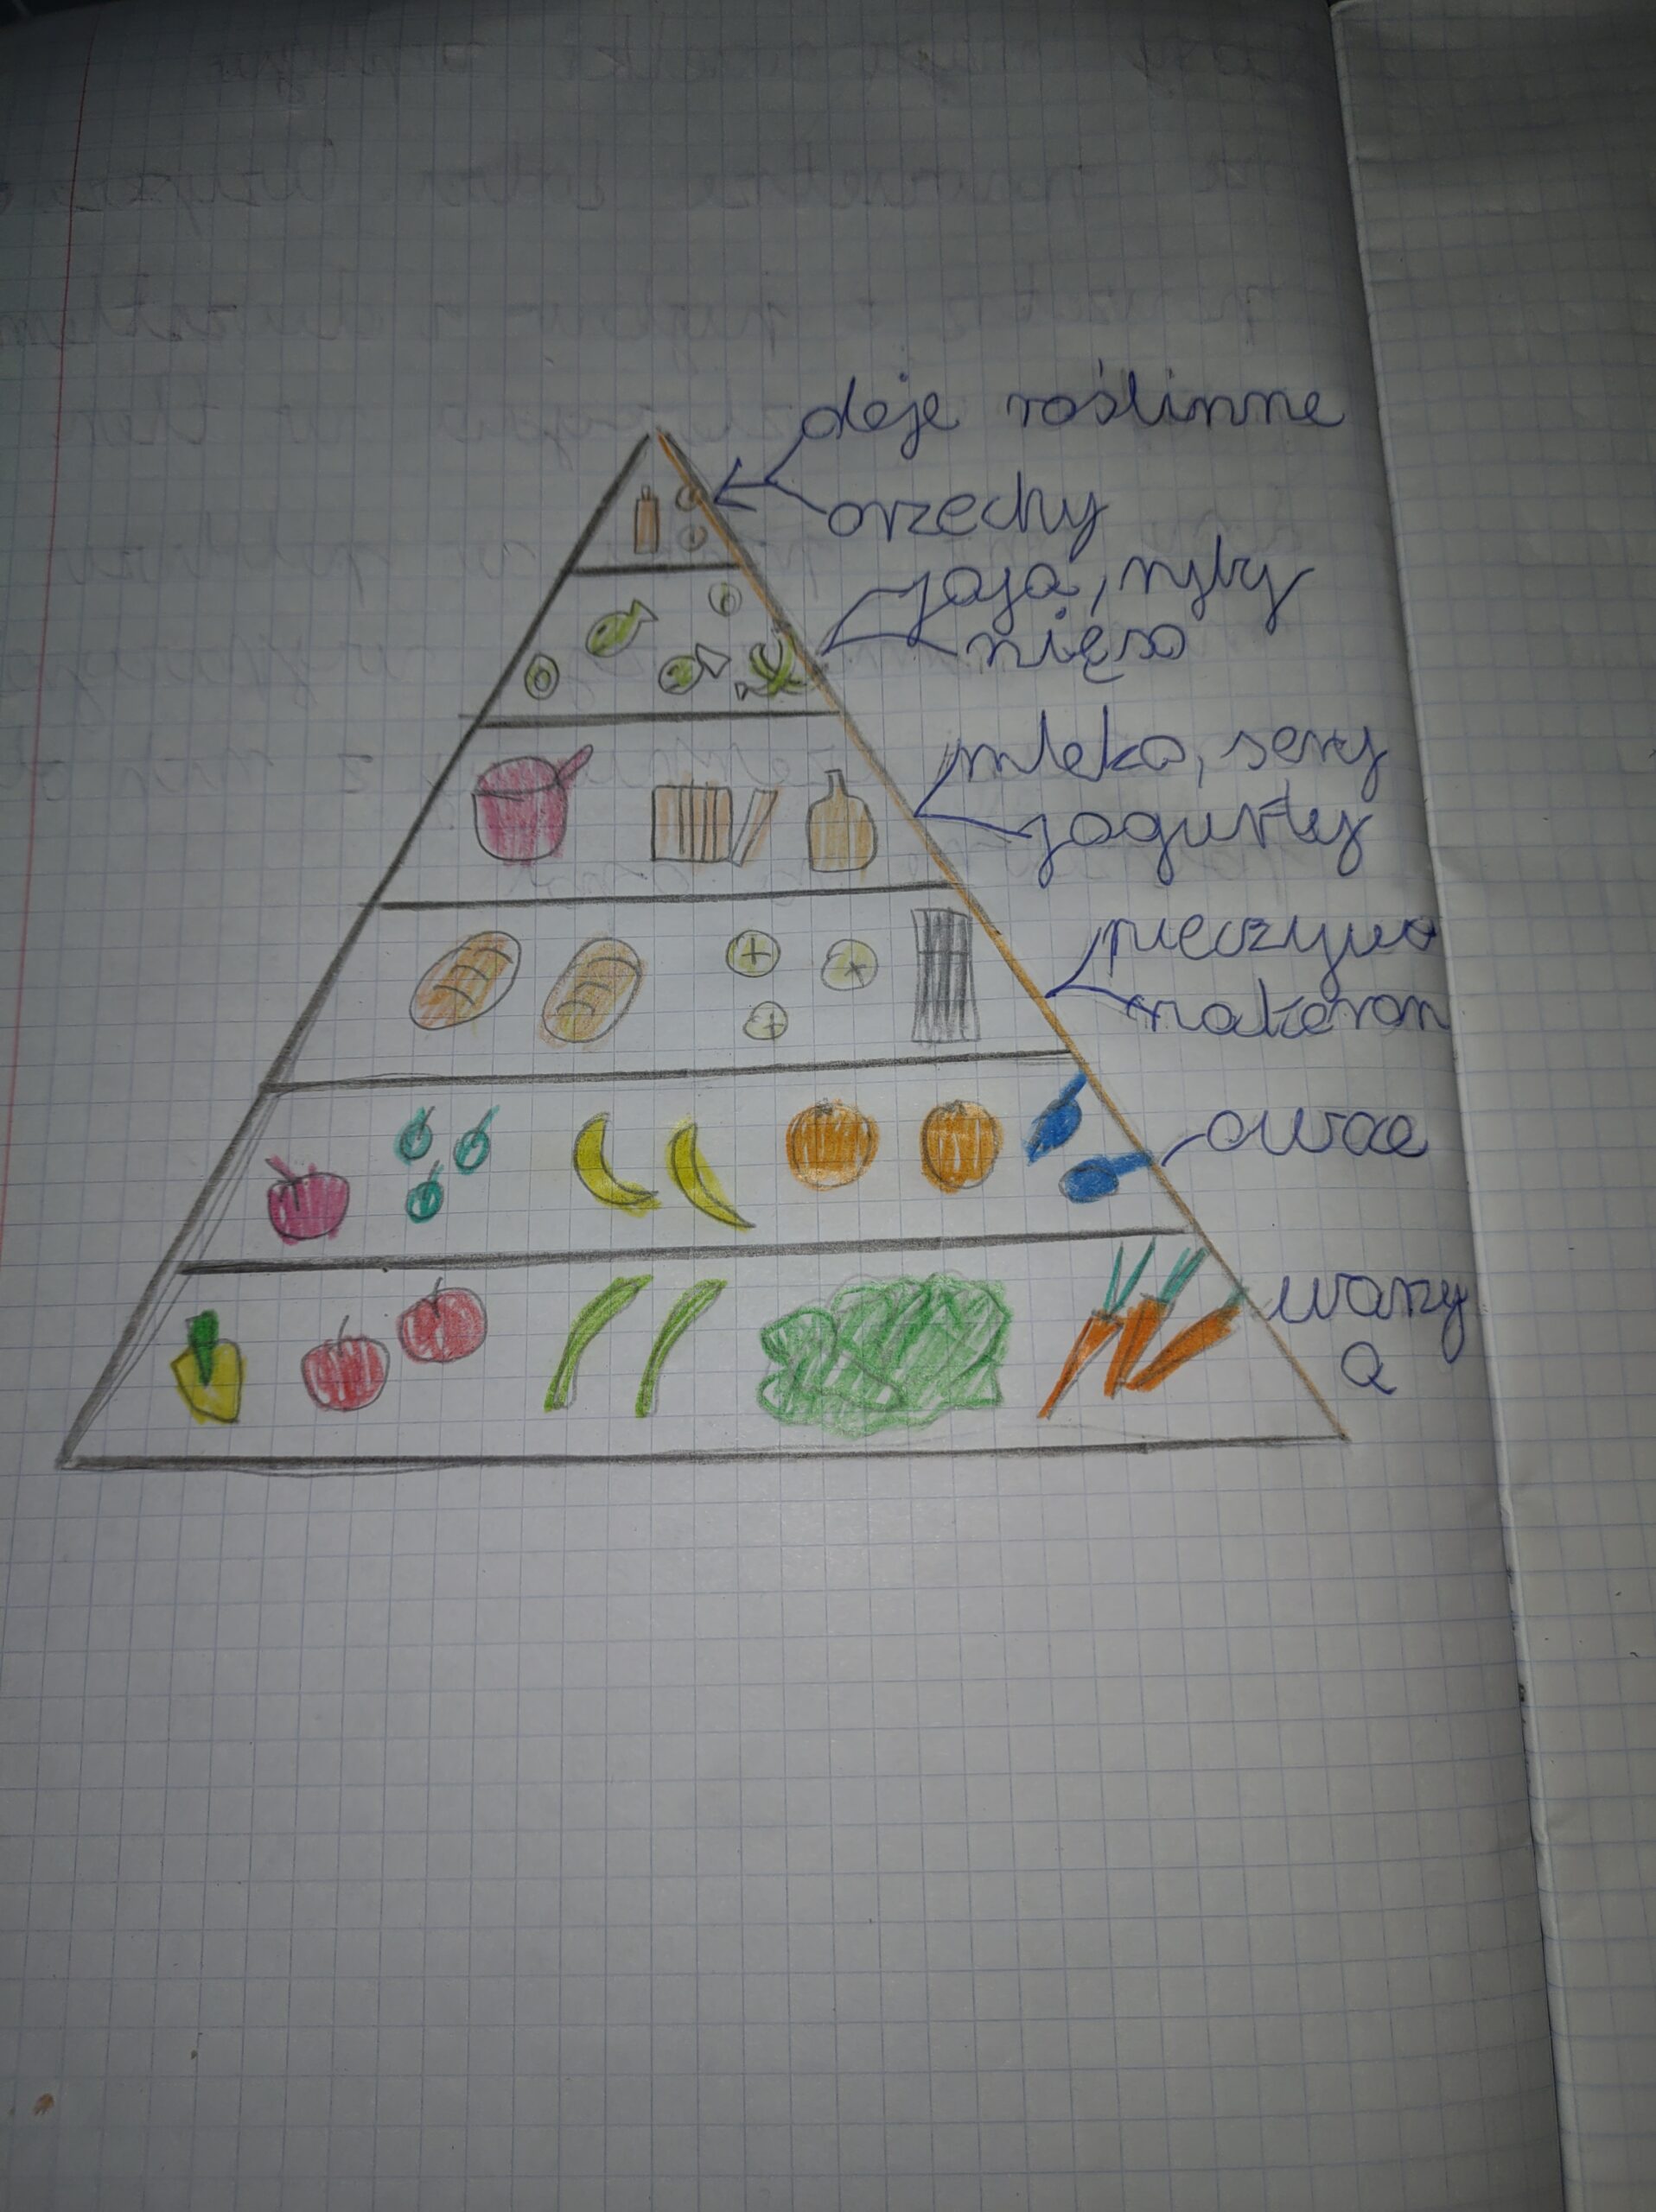 oleje roślinne
orzechy
jaja, ryby
mięso
mleko, sery
jogurty
pieczywo
makaron
owoce
warzy
a